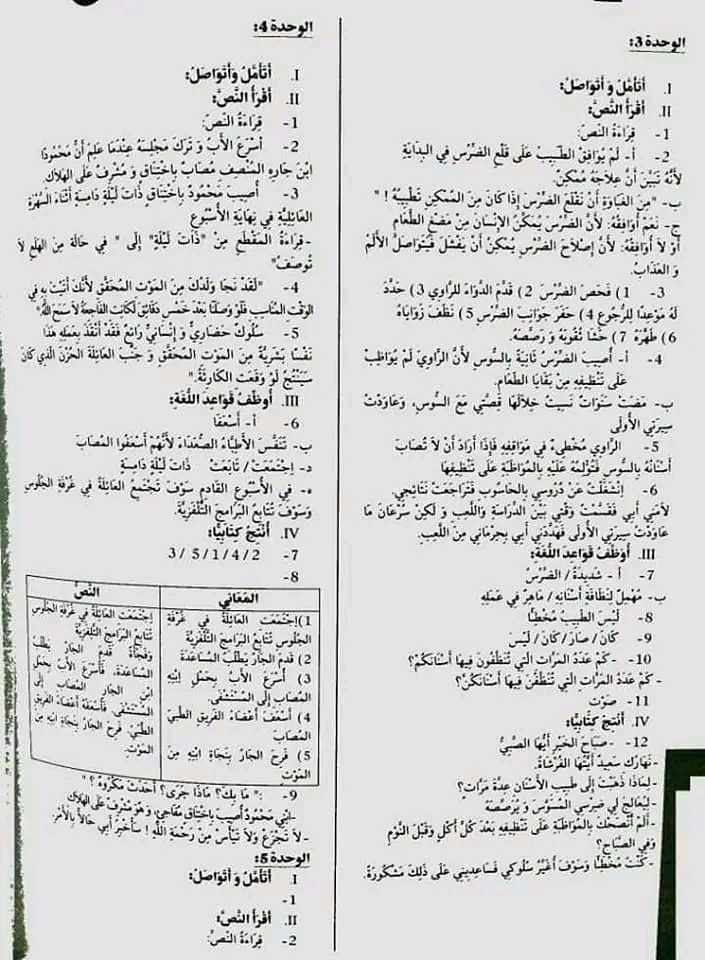 الوحدة 3:
I. أَتَأَمَّلُ وَ أَتَوَاصَلُ:
II. أَقْرَأُ النَّصَّ:
1- قِرَاءَةُ النَّصِّ:
2- أ- لَمْ يُوَافِقْ الطَّبِيبُ عَلَى قَلْعِ الضِّرْسِ فِي البِدَايَةِ
لأَنَّهُ تَبَيَّنَ أَنَّ عِلاَجَهُ مُمْكِنٌ.
ب- "مِنَ الغَبَاوَةِ أَنْ نَقْلَعَ الضِّرْسَ إِذَا كَانَ مِنَ المُمْكِنِ تَطْبِيبُهُ ! "
ج- نَعَمْ أُوَافِقُهُ: لأَنَّ الضِّرْسَ يُمَكِّنُ الإِنْسَانَ مِنْ مَضْغِ الطَّعَامِ
أَوْ لاَ أُوَافِقُهُ: لأَنَّ إِصْلاَحَ الضِّرْسِ يُمْكِنُ أَنْ يَفْشَلَ فَيَتَوَاصَلُ الأَلَمُ
وَ العَذَابُ.
3- 1) فَحَصَ الضِّرْسَ 2) قَدَّمَ الدَّوَاءَ لِلرَّاوِي 3) حَدَّدَ
لَهُ مَوْعِدًا لِلرُّجُوعِ 4) حَفَرَ جَوَانِبَ الضِّرْسِ 5) نَظَّفَ زَوَايَاهُ
6) طَهَّرَهُ 7) حَشَا ثُقُوبَهُ وَ رَصَّصَهُ.
4- أ- أُصِيبَ الضِّرْسُ ثَانِيَةً بِالسُّوسِ لأَنَّ الرَّاوِيَ لَمْ يُوَاظِبْ
عَلَى تَنْظِيفِهِ مِنْ بَقَايَا الطَّعَامِ.
ب- مَضَتْ سَنَوَاتٌ نَسِيتُ خِلاَلَهَا قِصَّتِي مَعَ السُّوسِ، وَعَاوَدْتُ
سِيرَتِي الأُولَى
5- الرَّاوِي مُخْطِىءٌ فِي مَوَاقِفِهِ فَإِذَا أَرَادَ أَنْ لاَ تُصَابَ
أَسْنَانُهُ بِالسُّوسِ فَتُؤْلِمُهُ عَلَيْهِ بِالمُوَاظَبَةِ عَلَى تَنْظِيفِهَا
6- اِنْشَغَلْتُ عَنْ دُرُوسِي بِالحَاسُوبِ فَتَرَاجَعَتْ نَتَائِجِي.
لاَمَنِي أَبِي فَقَسَّمْتُ وَقْتِي بَيْنَ الدِّرَاسَةِ وَاللَّعِبِ وَ لَكِنْ سُرْعَانَ مَا
عَاوَدْتُ سِيرَتِي الأُولَى فَهَدَّدَنِي أَبِي بِحِرْمَانِي مِنَ اللَّعِبِ.
III. أُوَظِّفُ قَوَاعِدَ اللُّغَةِ:
7- أ - شَدِيدَةٌ / الضِّرْسُ
ب- مُهْمِلٌ لِنَظَافَةِ أَسْنَانِهِ / مَاهِرٌ فِي عَمَلِهِ
8- لَيْسَ الطَّبِيبُ مُخْطِئًا
9- كَانَ / صَارَ / كَانَ / لَيْسَ
10- - كَمْ عَدَدُ المَرَّاتِ الَّتِي تُنَظِّفُونَ فِيهَا أَسْنَانَكُمْ؟
- كَمْ عَدَدُ المَرَّاتِ الَّتِي تُنَظِّفْنَ فِيهَا أَسْنَانَكُنَّ؟
11- صَوْت
IV. أُنْتِجُ كِتَابِيًّا:
12- -صَبَاحَ الخَيْرِ أَيُّهَا الصَّبِيُّ
- نَهَارُكِ سَعِيدٌ أَيَّتُهَا الفُرْشَاةُ.
- لِمَاذَا ذَهَبْتَ إِلَى طَبِيبِ الأَسْنَانِ عِدَّةَ مَرَّاتٍ؟
- لِيُعَالِجَ لِي ضِرْسِي المُسَوَّسَ وَ يُرَصِّصَهُ
- أَلَمْ أَنْصَحْكَ بِالمُوَاظَبَةِ عَلَى تَنْظِيفِهِ بَعْدَ كُلِّ أَكْلٍ وَقَبْلَ النَّوْمِ
وَفِي الصَّبَاحِ؟
- كُنْتُ مُخْطِئًا وَسَوْفَ أُغَيِّرُ سُلُوكِي فَسَاعِدِينِي عَلَى ذَلِكَ مَشْكُورَةً.
الوحدة 4:
I. أَتَأَمَّلُ وَأَتَوَاصَلُ:
II. أَقْرَأُ النَّصَّ:
1- قِرَاءَةُ النَّصِّ:
2- أَسْرَعَ الأَبُ وَ تَرَكَ مَجْلِسَهُ عِنْدَمَا عَلِمَ أَنَّ مَحْمُودًا
ابْنَ جَارِهِ المُنْصِفِ مُصَابٌ بِاخْتِنَاقٍ وَ مُشْرِفٌ عَلَى الهَلاَكِ.
3- أُصِيبَ مَحْمُودٌ بِاخْتِنَاقٍ ذَاتَ لَيْلَةٍ دَامِسَةٍ أَثْنَاءَ السَّهْرَةِ
العَائِلِيَّةِ فِي نِهَايَةِ الأُسْبُوعِ
- قِرَاءَةُ المَقْطَعِ مِنْ "ذَاتَ لَيْلَةٍ" إِلَى " فِي حَالَةٍ مِنَ الهَلَعِ لاَ
تُوصَفُ"
4- "لَقَدْ نَجَا وَلَدُكَ مِنَ المَوْتِ المُحَقَّقِ لأَنَّكَ أَتَيْتَ بِهِ فِي
الوَقْتِ المُنَاسِبِ فَلَوْ وَصَلْنَا بَعْدَ خَمْسِ دَقَائِقَ لَكَانَتِ الفَاجِعَةُ لاَ سَمَحَ اللهُ"
5- سُلُوكٌ حَضَارِيٌّ وَ إِنْسَانِيٌّ رَائِعٌ فَقَدْ أَنْقَذَ بِعَمَلِهِ هَذَا
نَفْسًا بَشَرِيَّةً مِنَ المَوْتِ المُحَقَّقِ وَ جَنَّبَ العَائِلَةَ الحُزْنَ الَّذِي كَانَ
سَيَنْتُجُ لَوْ وَقَعَتِ الكَارِثَةُ."
III. أُوَظِّفُ قَوَاعِدَ اللُّغَةِ:
6- أ- أَسْعَفَا
ب- تَنَفَّسَ الأَطِبَّاءُ الصُّعَدَاءَ لأَنَّهُمْ أَسْعَفُوا المُصَابَ
د- اِجْتَمَعَتْ/ تَابَعَتْ ذَاتَ لَيْلَةٍ دَامِسَةٍ
ه- فِي الأُسْبُوعِ القَادِمِ سَوْفَ تَجْتَمِعُ العَائِلَةُ فِي غُرْفَةِ الجُلُوسِ
وَسَوْفَ تُتَابِعُ البَرَامِجَ التَّلْفَزِيَّةَ.
IV. أُنْتِجُ كِتَابِيًّا:
7- 2 / 4 / 1 / 5 / 3
8-
المَعَانِي
1) اِجْتَمَعَتِ العَائِلَةُ فِي غُرْفَةِ
الجُلُوسِ تُتَابِعُ البَرَامِجَ التَّلْفَزِيَّةَ
2) قَدِمَ الجَارُ يَطْلُبُ المُسَاعَدَةَ
3) أَسْرَعَ الأَبُ بِحَمْلِ ابْنِهِ
المُصَابِ إِلَى المُسْتَشْفَى.
4) أَسْعَفَ أَعْضَاءُ الفَرِيقِ الطِّبِّيِّ
المُصَابَ
5) فَرِحَ الجَارُ بِنَجَاةِ ابْنِهِ مِنَ
المَوْتِ
النَّصُّ
اِجْتَمَعَتِ العَائِلَةُ فِي غُرْفَةِ الجُلُوسِ
تُتَابِعُ البَرَامِجَ التَّلْفَزِيَّةَ
وَفَجْأَةً قَدِمَ الجَارُ يَطْلُبُ
المُسَاعَدَةَ. فَأَسْرَعَ الأَبُ بِحَمْلِ
ابْنِ الجَارِ المُصَابِ إِلَى
المُسْتَشْفَى. فَأَسْعَفَهُ أَعْضَاءُ الفَرِيقِ
الطِّبِّيِّ. فَرِحَ الجَارُ بِنَجَاةِ ابْنِهِ مِنَ
المَوْتِ.
9- -:" مَا بِكَ؟ مَاذَا جَرَى؟ أَحَدَثَ مَكْرُوهٌ؟ "
-ابْنِي مَحْمُودٌ أُصِيبَ بِاخْتِنَاقٍ مُفَاجِئٍ، وَهُوَ مُشْرِفٌ عَلَى الهَلاَكِ
- لاَ تَجْزَعْ وَلاَ تَيْأَسْ مِنْ رَحْمَةِ اللهِ ! سَأُخْبِرُ أَبِي حَالاً بِالأَمْرِ.
الوحدة 5:
I. أَتَأَمَّلُ وَ أَتَوَاصَلُ:
1-
II. أَقْرَأُ النَّصَّ:
2- قِرَاءَةُ النَّصِّ: